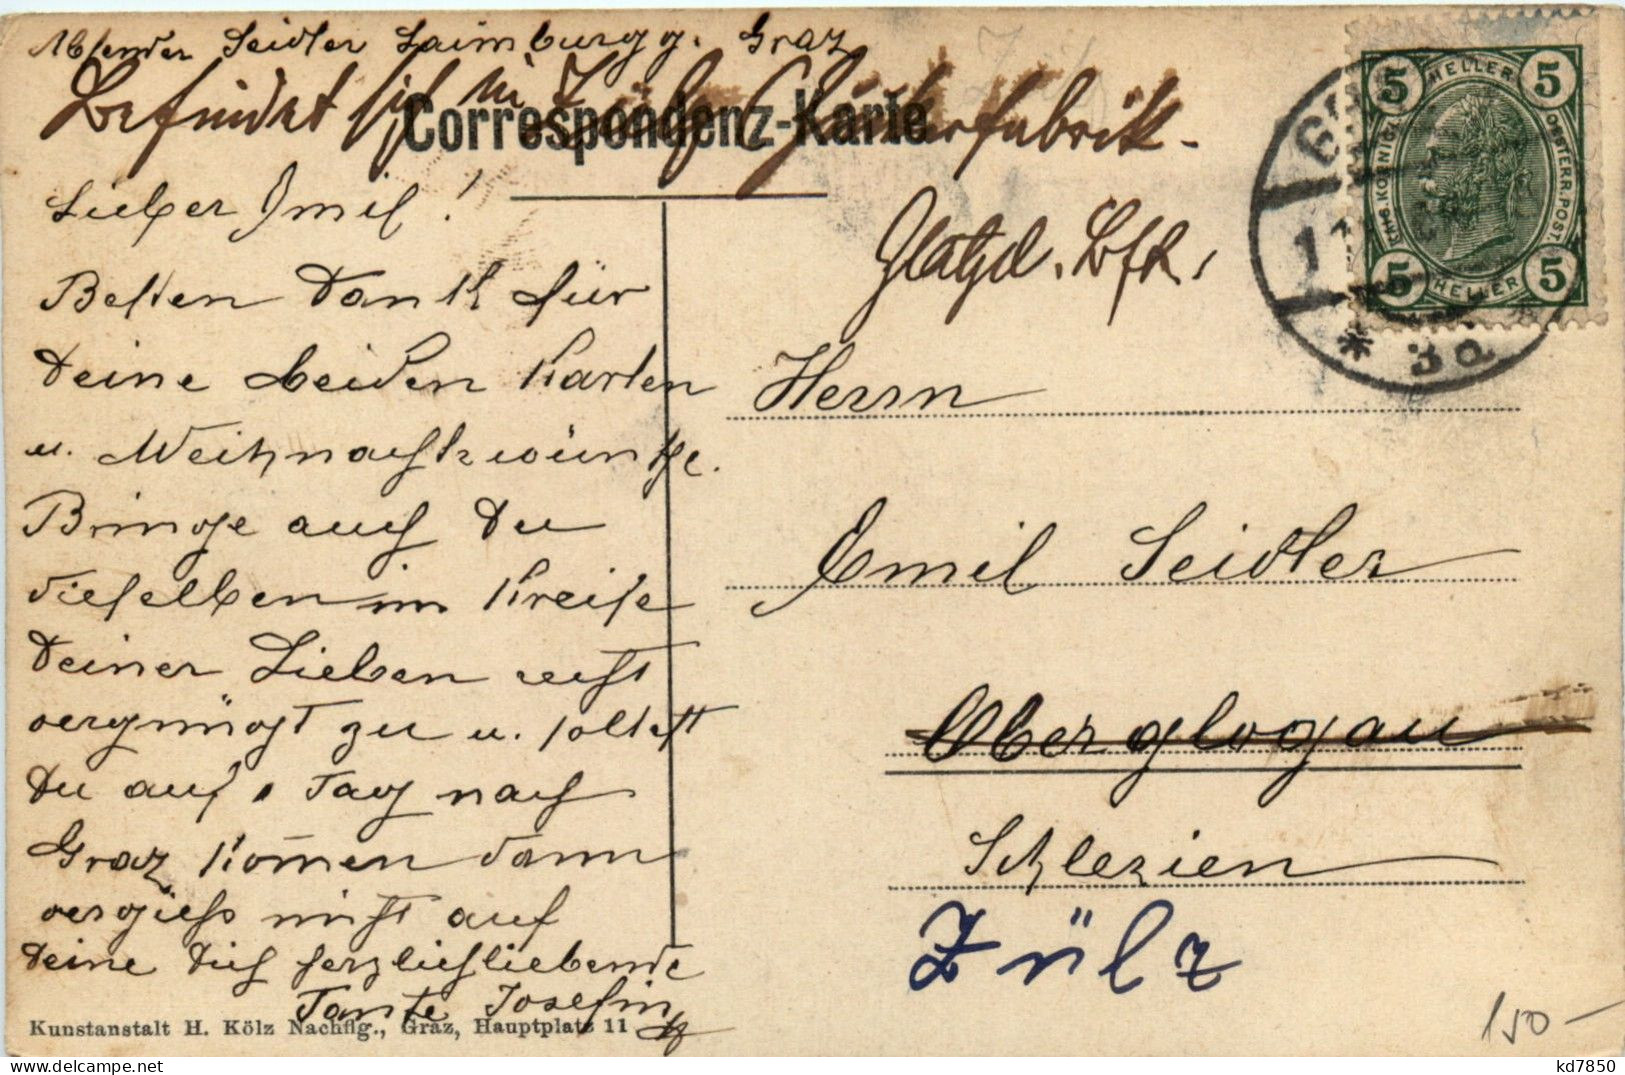 Absender Seidler Laimburgg. Graz
Befindet sich in Zülz Zuckerfabrik.
Correspondenz-Karte
Lieber Emil!
Besten Dank für
Deine beiden Karten
u. Weihnachtswünsche.
Bringe auch Du
dieselben im Kreise
Deiner Lieben recht
vergnügt zu u. solltest
Du auf 1 Tag nach
Graz kom̄en dann
vergiess nicht auf
Deine Dich herzlichliebende
Tante Josefin
Kunstanstalt H. Kölz Nachflg., Graz, Hauptplatz 11
5 HELLER 5
KAIS. KÖNIGL. OESTERR. POST.
5 HELLER 5
3d
Herrn
Emil Seidler
Oberglogau
Schlesien
Zülz
150-
kd7850